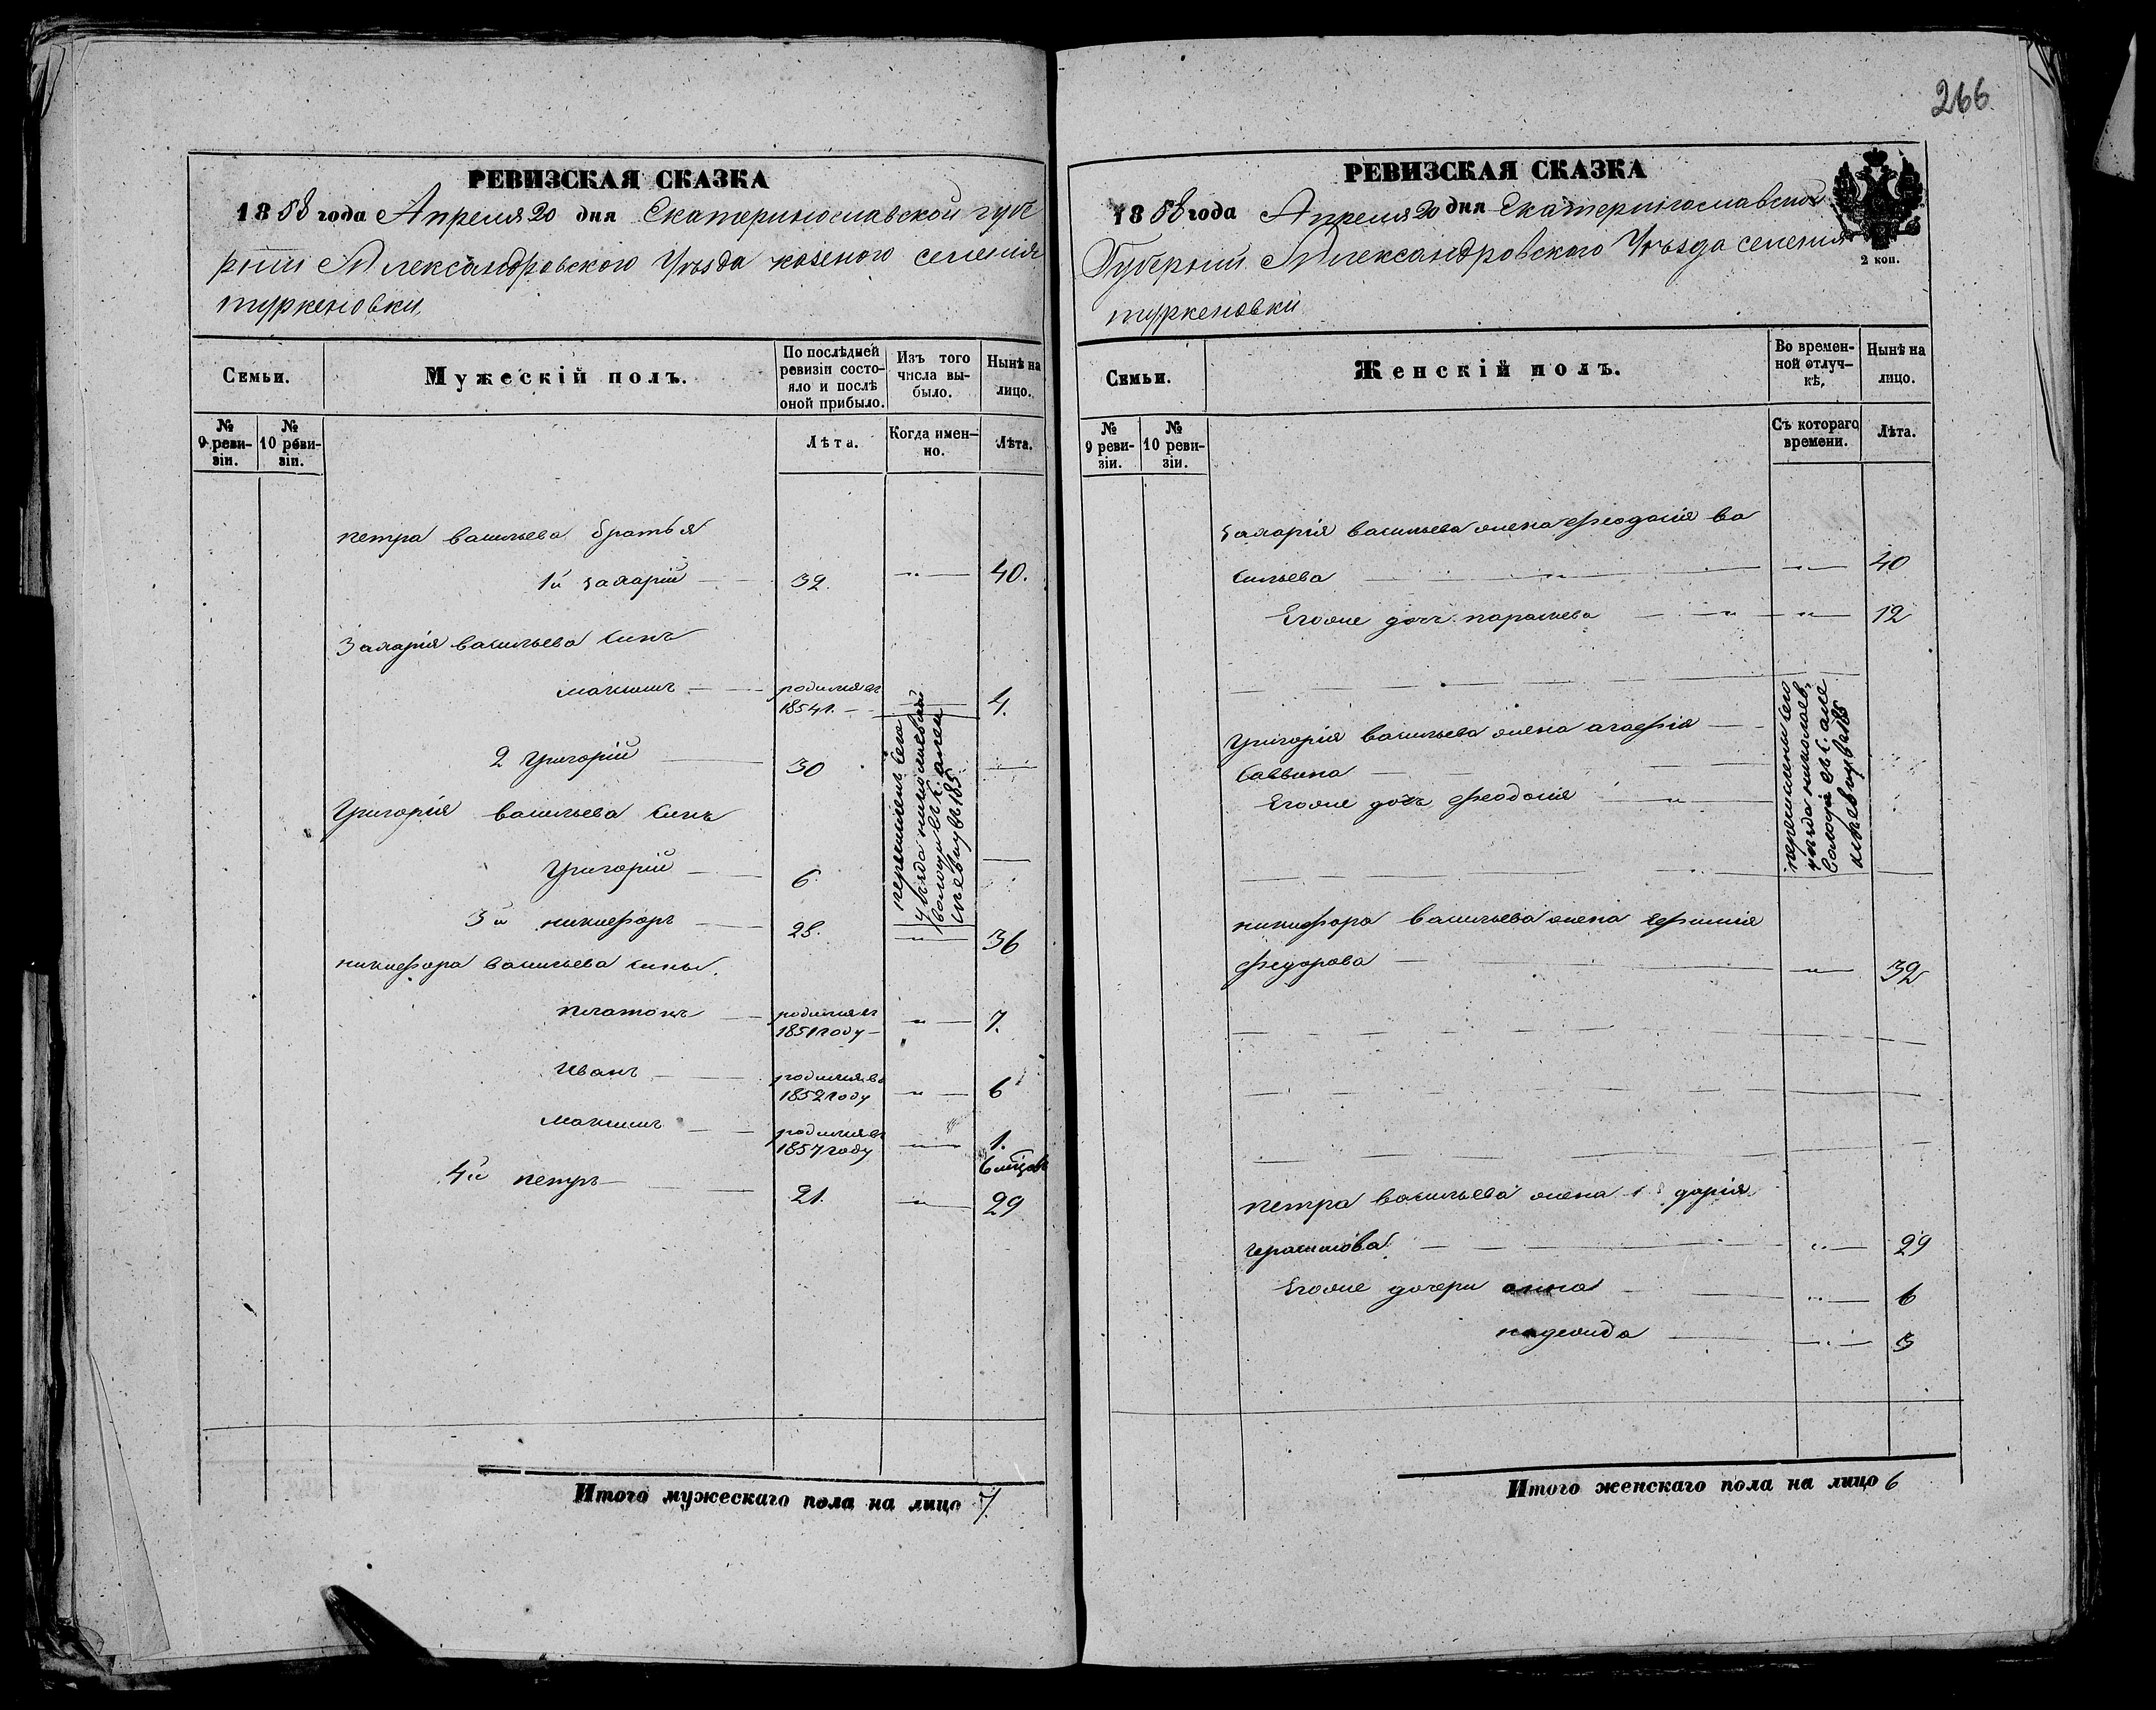 266.
РЕВИЗСКАЯ СКАЗКА
1858 года Апреля 20 дня Екатеринославской губе
рнии Александровского Уѣзда казеного селения
туркеновки
Семьи.
Мужескій полъ.
По послѣдней
ревизіи состо-
яло и послѣ
оной прибыло.
Изъ того
числа вы-
было.
Нынѣ на
лицо.
№
9 реви-
зіи.
№
10 реви-
зіи.
Лѣта.
Когда имен-
но.
Лѣта.
петра васильева братья
1й захарій 32. " 40.
Захария васильева синъ
максимъ родился въ
1854 г. 4.
2 григорій 30
Григорія васильева синъ
Григорій 6.
перечисленъ сего
уѣзда николаевской
волощи въ с.
3й никифоръ 28. " 36
никифора васильева сины.
платонъ родился въ
1851 году " 7.
Иванъ родился въ
1852 году " 6
максимъ родился въ
1857 году " 1.
6 мѣцовъ
4й петръ 21. " 29
Итого мужескаго пола на лицо 7.
РЕВИЗСКАЯ СКАЗКА
1858 года Апреля 20 дня Екатеринославской
Губернии Александровского Уѣзда селения
туркеновки
2 коп.
Семьи.
Женскій полъ.
Во времен-
ной отлуч-
кѣ,
Нынѣ на
лицо.
№
9 реви-
зіи.
№
10 реви-
зіи.
Съ котораго
времени.
Лѣта.
Захарія васильева жена Феодосія ва
сильева " " 40
Егоже дочь параскева " " 12
Григорія васильева жена агафія
саввина
Егоже дочь феодосія "
перечислены сего
уѣзда николаев.
волощи въ с.
никифора васильева жена ефимія
федорова " 32
петра васильева жена 1 дарія
герасимова " 29
Егоже дочери анна " 6
надежда " 3
Итого женскаго пола на лицо 6